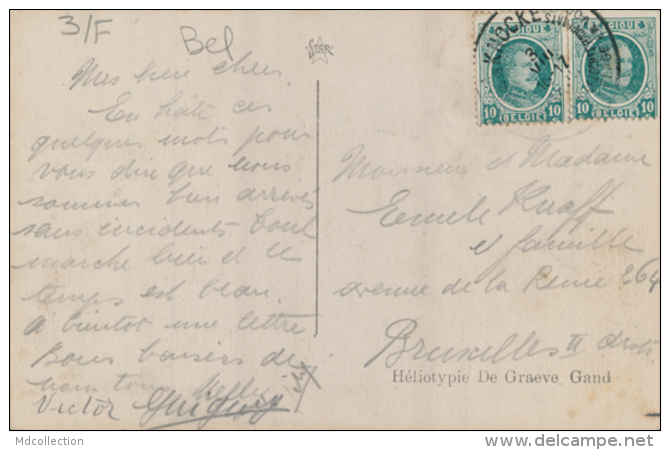 3/F
Bel
STAR
Mes bien chers
En hâte ces
quelques mots pour
vous dire que nous
sommes bien arrivés
sans incidents Tout
marche bien et le
temps est beau.
A bientot une lettre
Bons baisers de
nous tous Nelly
Victor
KNOCKE
BELGIQUE
10 BELGIE 10
10 BELGIE 10
Monsieur et Madame
Emile Knaff
et famille
avenue de la Reine 264
Bruxelles II
Héliotypie De Graeve, Gand
Mdcollection
www.delcampe.net